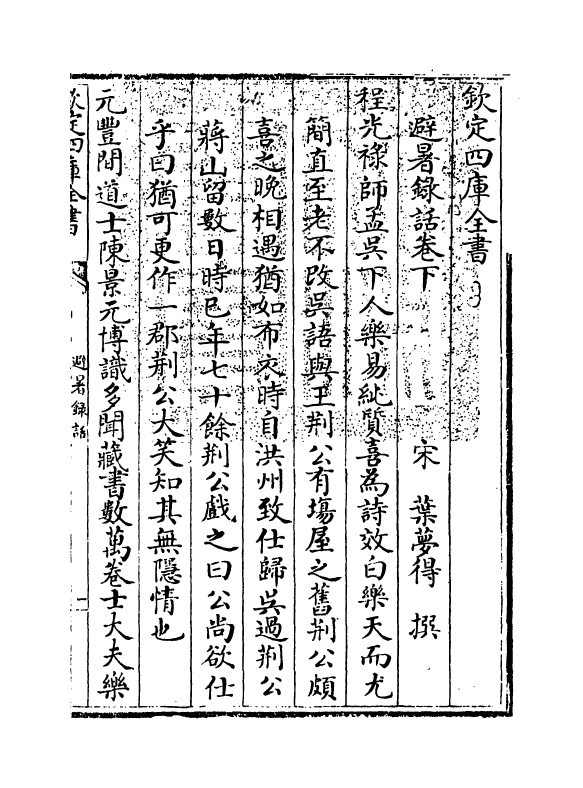 欽定四庫全書
避暑錄話卷下
宋 葉夢得 撰
程光祿師孟吳下人樂易紕質喜為詩效白樂天而尤
簡直至老不改吳語與王荆公有場屋之舊荆公頗
喜之晚相遇猶如布衣時自洪州致仕歸吳過荆公
蔣山留數日時已年七十餘荆公戲之曰公尚欲仕
乎曰猶可更作一郡荆公大笑知其無隱情也
元豐間道士陳景元博識多聞藏書數萬卷士大夫樂
欽定四庫全書
避暑録話